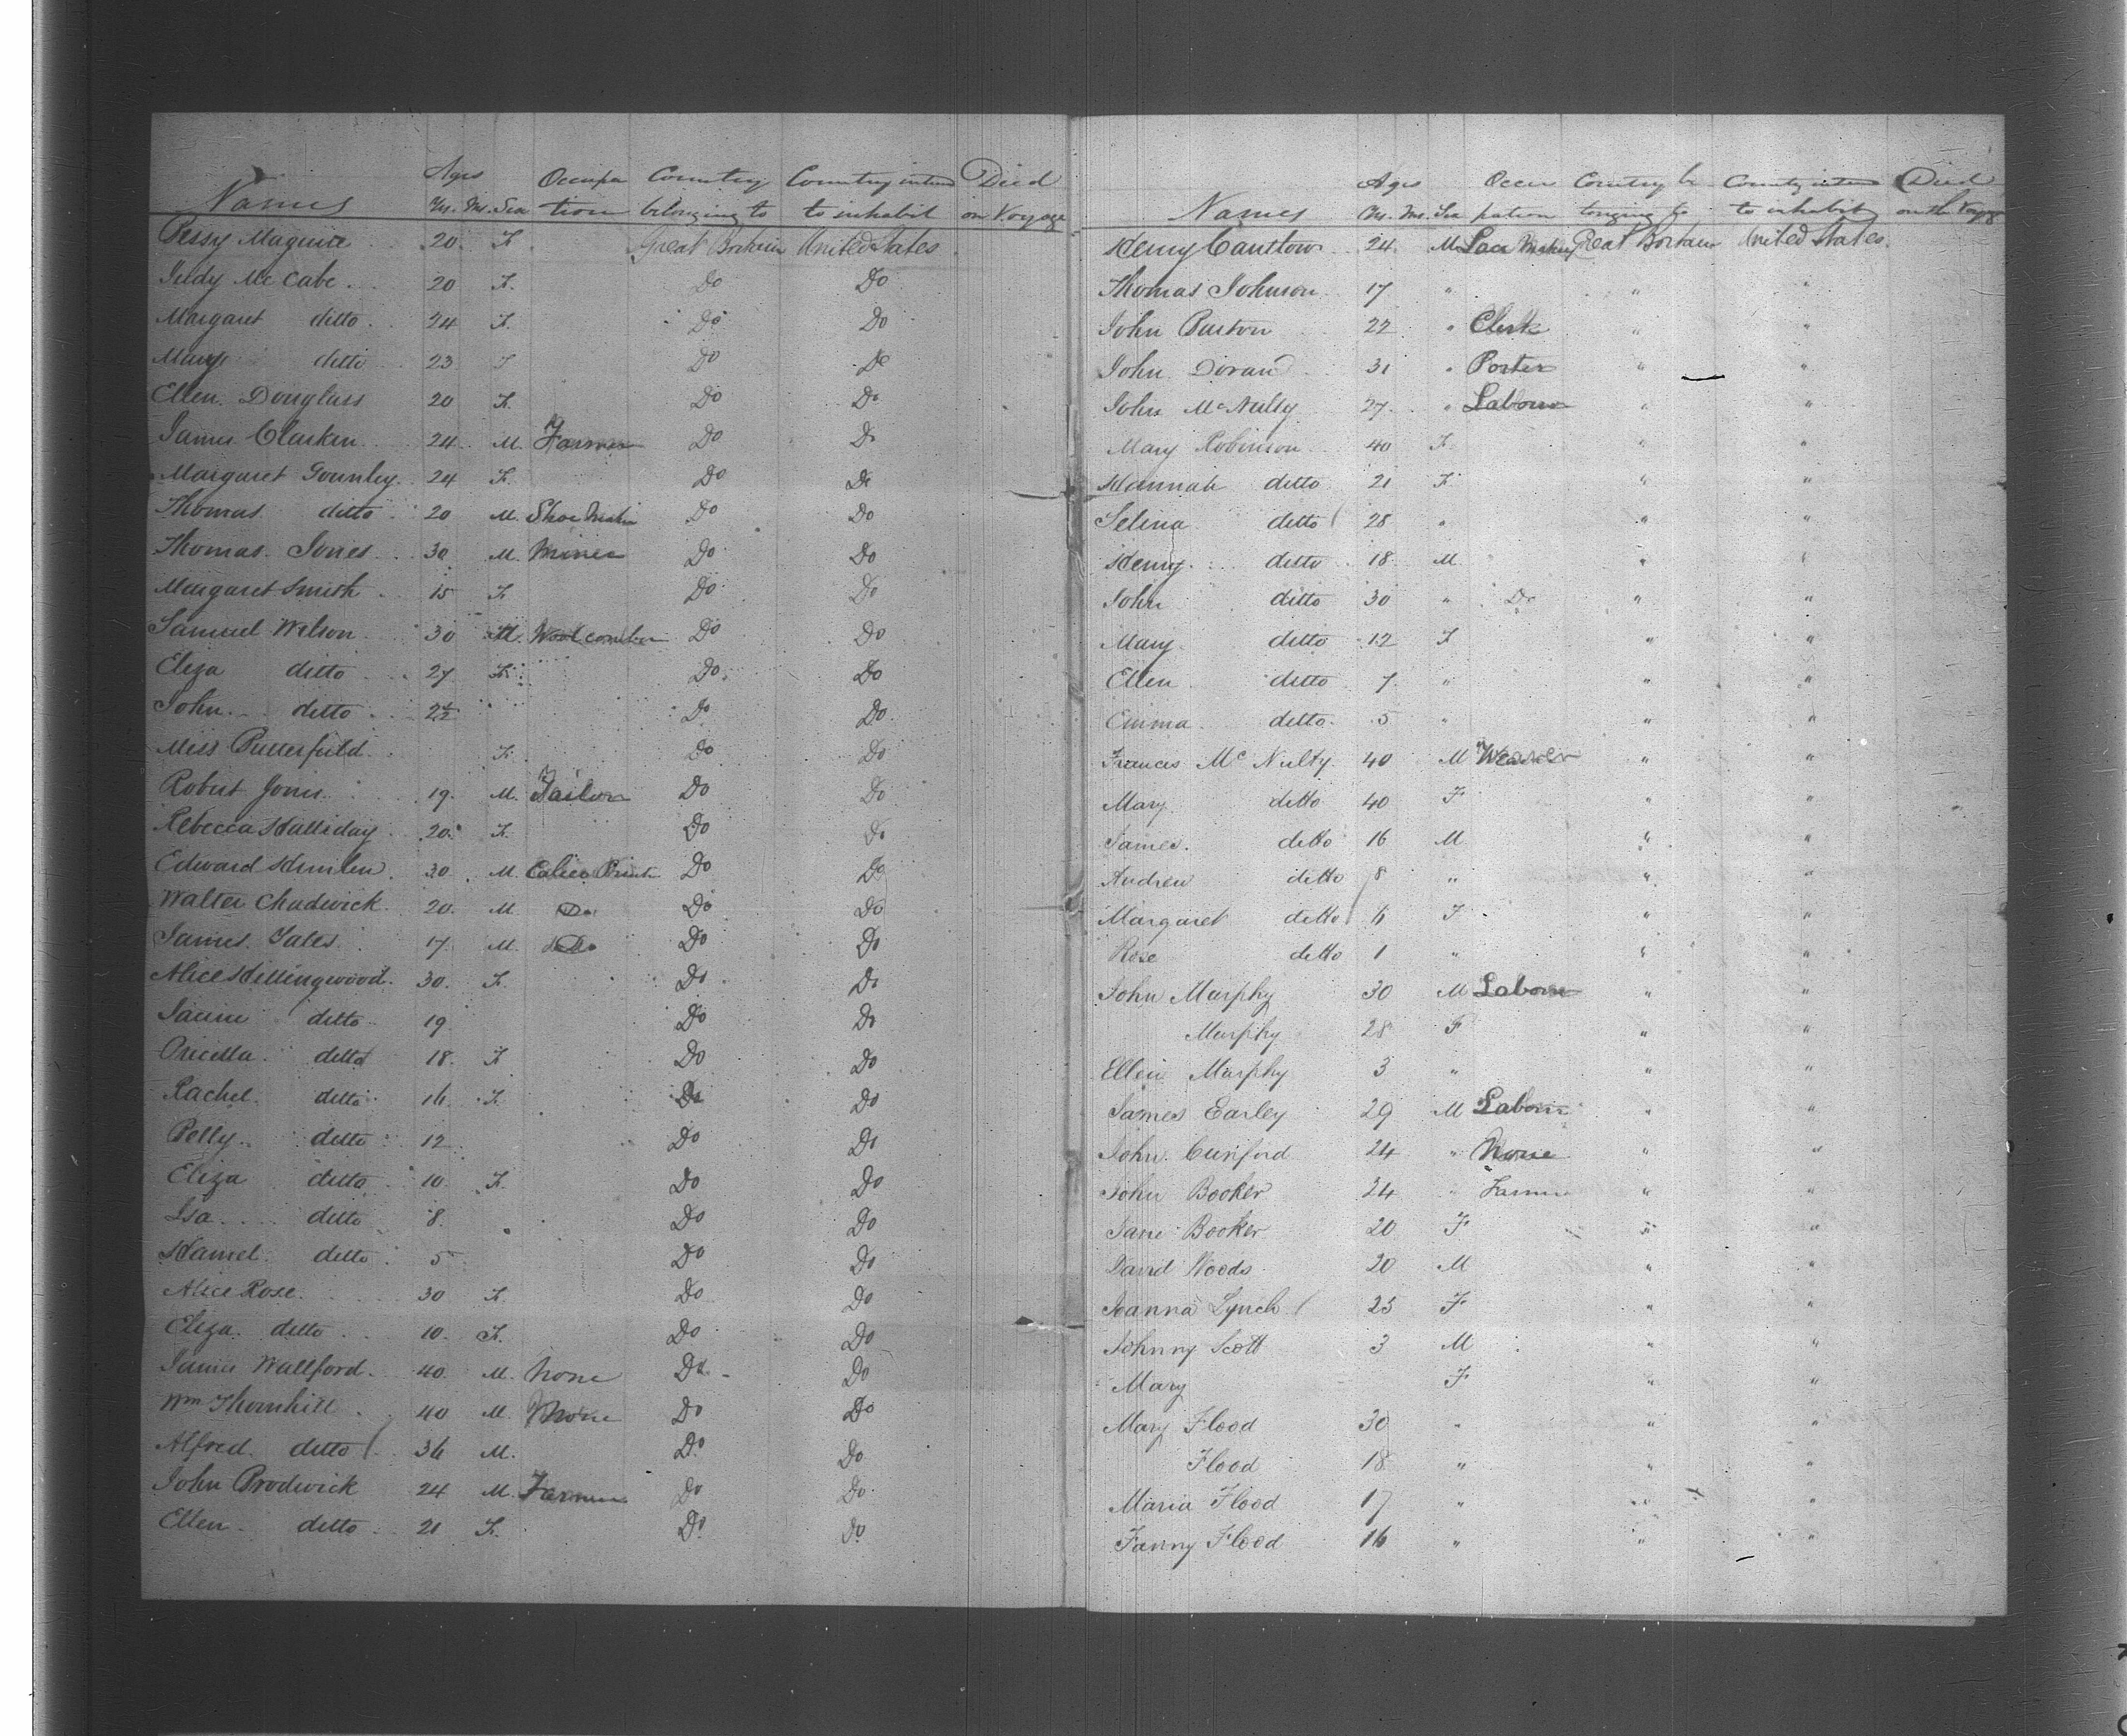 Names Ages Ys. Ms. Sex Occupa tion Country belonging to Country intend to inhabit Died on Voyage
Bessy Maguire 20 F. Great Britain United States
Judy Mc Cabe 20 F. Do Do
Margaret ditto 24 F. Do Do
Mary ditto 23 F Do Do
Ellen Douglass 20 F. Do Do
James Clarken 24 M. Farmer Do Do
Margaret Gournley 24 F. Do Do
Thomas ditto 20 M. Shoe Makr Do Do
Thomas Jones 30 M. Miner Do Do
Margaret Smith 15 F Do Do
Samuel Wilson 30 M. Wool comber Do Do
Eliza ditto 27 F. Do Do
John ditto 2½ Do Do
Miss Butterfield F. Do Do
Robert Jones 19 M. Tailor Do Do
Rebecca Halliday 20 F. Do Do
Edward 30 M. Calico Print Do Do
Walter Chadwick 20 M. Do Do Do
James Yates 17 M. Do Do Do
Alice Hellingwood 30. F. Do Do
ditto 19 Do Do
Pricilla ditto 18. F Do Do
Rachel ditto 16 F. Do Do
Betty ditto 12 Do Do
Eliza ditto 10. F. Do Do
Isa ditto 8. Do Do
ditto 5 Do Do
Alice Rose 30 F. Do Do
Eliza ditto 10. F. Do Do
James Wallford 40. M. None Do Do
Wm Thornhill 40 M. None Do Do
Alfred ditto 36 M. Do Do
John Brodwick 24 M. Farmer Do Do
Ellen ditto 21 F. Do Do
Names Ages Ys. Ms. Sex Occu pation Country be longing to Country intend to inhabit Died on the Voyge
Henry 24 M Lace Great Britain United States
Thomas Johnson 17 " " "
John Burton 22 " Clerk " "
John Doran 31 " Porter " "
John McNulty 27 " Labour " "
Mary Robinson 40 F " "
Hannah ditto 21 F " "
Selina ditto 28 " " "
Henry ditto 18 M " "
John ditto 30 " Do " "
Mary ditto 12 F " "
Ellen ditto 7 " " "
Emma ditto 5 " " "
Francis Mc Nulty 40 M Weaver " "
Mary ditto 40 F " "
James ditto 16 M " "
Andrew ditto 8 " " "
Margaret ditto 6 F " "
Rose ditto 1 " " "
John Murphy 30 M Labour " "
Murphy 28 F " "
Ellen Murphy 3 " " "
James Earley 29 M Labour " "
John Cunford 24 " None " "
John Booker 24 " Farmer " "
Jane Booker 20 F " "
David Woods 20 M " "
Joanna Lynch 25 F " "
Johnny Scott 3 M " "
Mary F " "
Mary Flood 30 " " "
Flood 18 " " "
Maria Flood 17 " " "
Fanny Flood 16 " " "